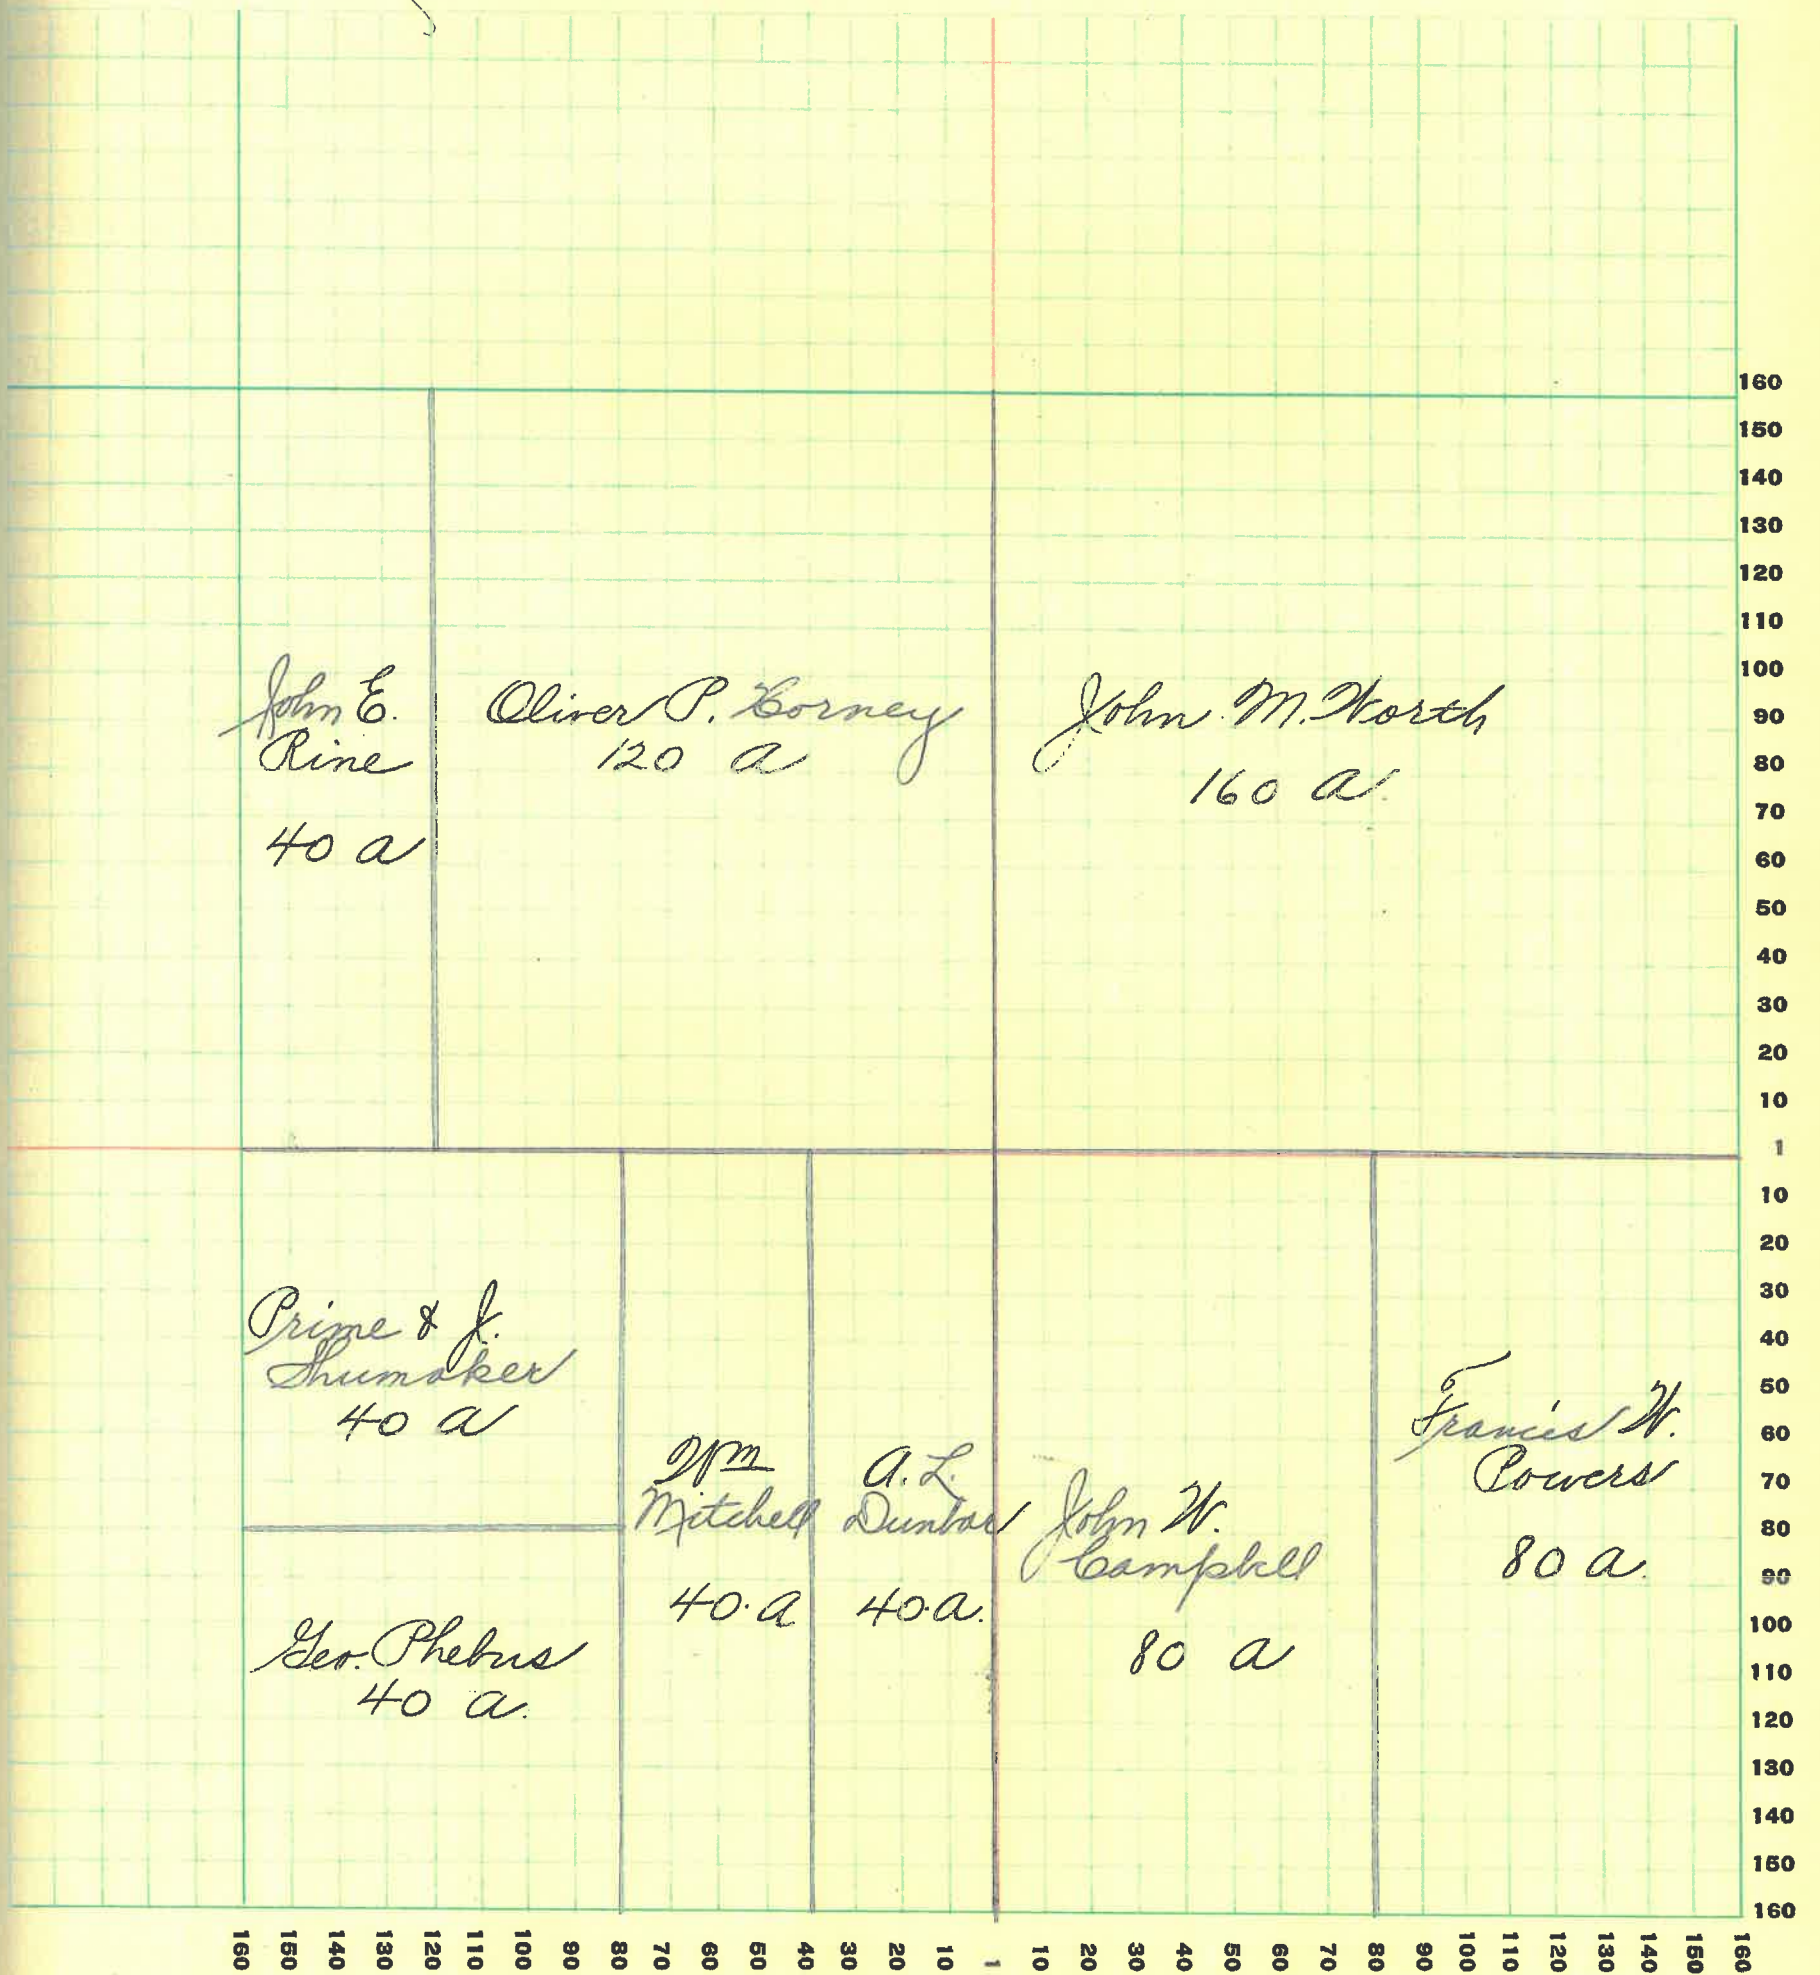 John E.
Rine
40 a
Oliver P. Horney
120 a
John M. Worth
160 a.
Prime & J.
Shumaker
40 a
Geo. Phebus
40 a.
Wm
Mitchell
40. a
A. L.
Dunbar
40. a.
John W.
Campbell
80 a
Francis W.
Powers
80 a.
160
150
140
130
120
110
100
90
80
70
60
50
40
30
20
10
1
10
20
30
40
50
60
70
80
90
100
110
120
130
140
150
160
160 150 140 130 120 110 100 90 80 70 60 50 40 30 20 10 1 10 20 30 40 50 60 70 80 90 100 110 120 130 140 150 160